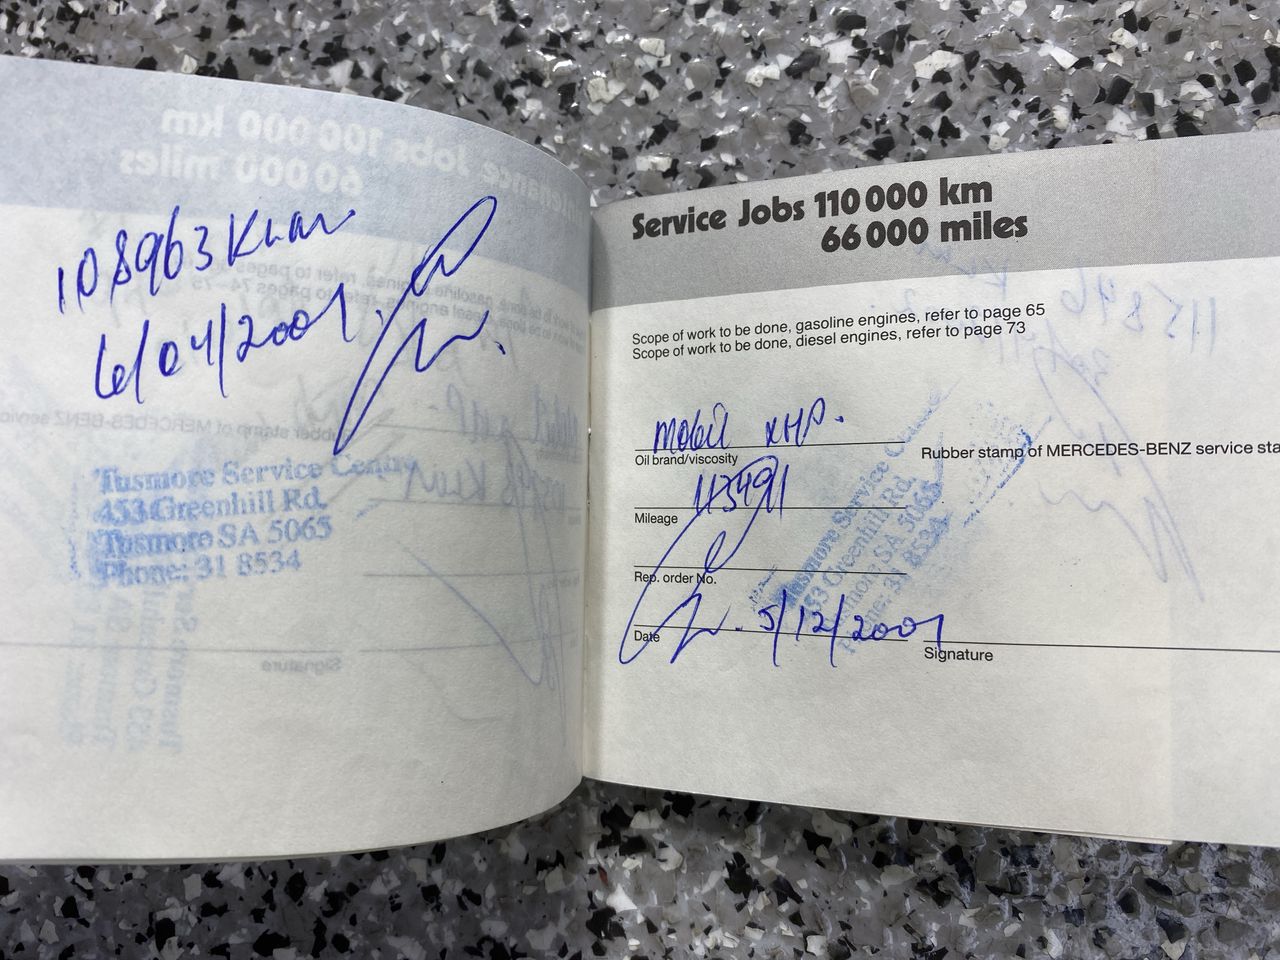 108963 Km
6/04/2001.
Tusmore Service Centre
453 Greenhill Rd.
Tusmore SA 5065
Phone: 31 8534
Service Jobs 110 000 km
66 000 miles
Scope of work to be done, gasoline engines, refer to page 65
Scope of work to be done, diesel engines, refer to page 73
Mobil XHP.
Oil brand/viscosity
Rubber stamp of MERCEDES-BENZ service sta
113491
Mileage
Rep. order No.
Tusmore Service Centre
453 Greenhill Rd.
Tusmore SA 5065
Phone: 31 8534
5/12/2001
Date
Signature